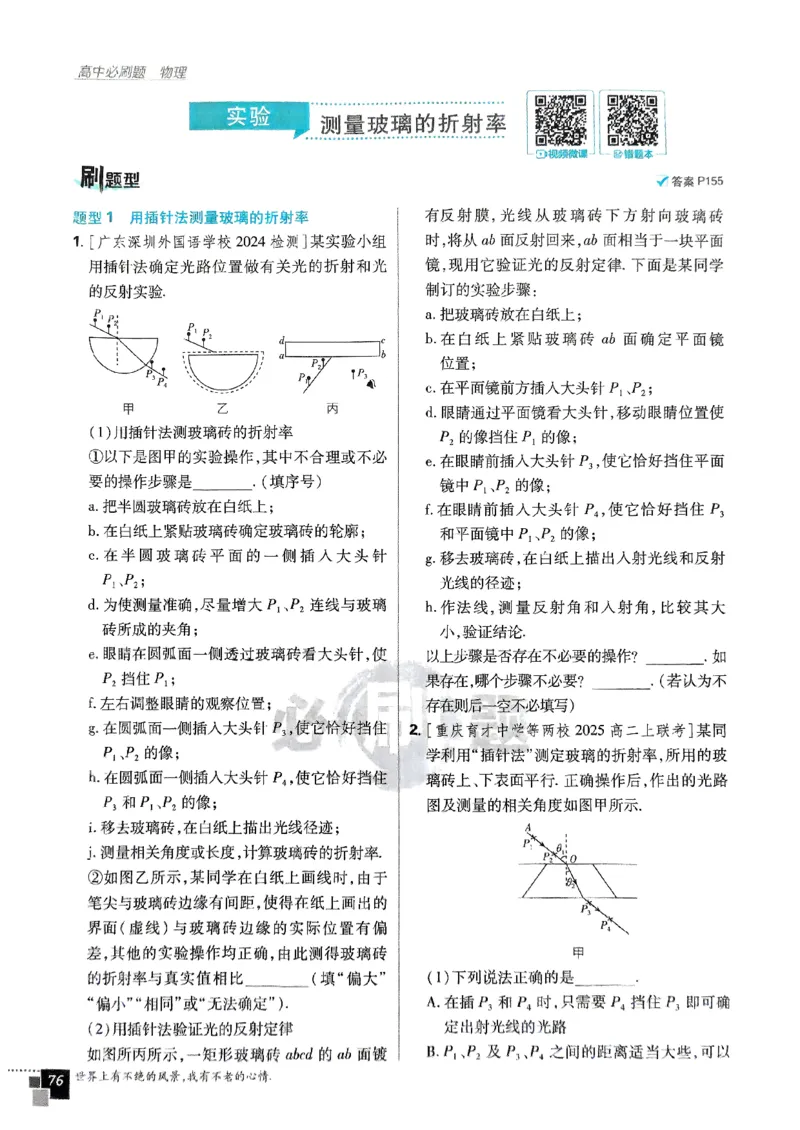 高中必刷题 物理
实验 测量玻璃的折射率
视频微课 错题本
刷题型
答案 P155
题型 1 用插针法测量玻璃的折射率
1. [广东深圳外国语学校 2024 检测]某实验小组
用插针法确定光路位置做有关光的折射和光
的反射实验.
P₁ P₂ P₃ P₄
P₁ P₂
d c a b P₂ P₁ P₃
甲 乙 丙
(1)用插针法测玻璃砖的折射率
①以下是图甲的实验操作,其中不合理或不必
要的操作步骤是________.(填序号)
a. 把半圆玻璃砖放在白纸上;
b. 在白纸上紧贴玻璃砖确定玻璃砖的轮廓;
c. 在半圆玻璃砖平面的一侧插入大头针
P₁、P₂;
d. 为使测量准确,尽量增大 P₁、P₂ 连线与玻璃
砖所成的夹角;
e. 眼睛在圆弧面一侧透过玻璃砖看大头针,使
P₂ 挡住 P₁;
f. 左右调整眼睛的观察位置;
g. 在圆弧面一侧插入大头针 P₃,使它恰好挡住
P₁、P₂ 的像;
h. 在圆弧面一侧插入大头针 P₄,使它恰好挡住
P₃ 和 P₁、P₂ 的像;
i. 移去玻璃砖,在白纸上描出光线径迹;
j. 测量相关角度或长度,计算玻璃砖的折射率.
②如图乙所示,某同学在白纸上画线时,由于
笔尖与玻璃砖边缘有间距,使得在纸上画出的
界面(虚线)与玻璃砖边缘的实际位置有偏
差,其他的实验操作均正确,由此测得玻璃砖
的折射率与真实值相比________(填“偏大”
“偏小”“相同”或“无法确定”).
(2)用插针法验证光的反射定律
如图所丙所示,一矩形玻璃砖 abcd 的 ab 面镀
有反射膜,光线从玻璃砖下方射向玻璃砖
时,将从 ab 面反射回来,ab 面相当于一块平面
镜,现用它验证光的反射定律. 下面是某同学
制订的实验步骤:
a. 把玻璃砖放在白纸上;
b. 在白纸上紧贴玻璃砖 ab 面确定平面镜
位置;
c. 在平面镜前方插入大头针 P₁、P₂;
d. 眼睛通过平面镜看大头针,移动眼睛位置使
P₂ 的像挡住 P₁ 的像;
e. 在眼睛前插入大头针 P₃,使它恰好挡住平面
镜中 P₁、P₂ 的像;
f. 在眼睛前插入大头针 P₄,使它恰好挡住 P₃
和平面镜中 P₁、P₂ 的像;
g. 移去玻璃砖,在白纸上描出入射光线和反射
光线的径迹;
h. 作法线,测量反射角和入射角,比较其大
小,验证结论.
以上步骤是否存在不必要的操作? ________. 如
果存在,哪个步骤不必要? ________.(若认为不
存在则后一空不必填写)
2. [重庆育才中学等两校 2025 高二上联考]某同
学利用“插针法”测定玻璃的折射率,所用的玻
璃砖上、下表面平行. 正确操作后,作出的光路
图及测量的相关角度如图甲所示.
A P₁ P₂ θ₁ O θ₂ P₃ P₄
甲
(1)下列说法正确的是________.
A. 在插 P₃ 和 P₄ 时,只需要 P₄ 挡住 P₃ 即可确
定出射光线的光路
B. P₁、P₂ 及 P₃、P₄ 之间的距离适当大些,可以
必刷题
76 世界上有不绝的风景,我有不老的心情.